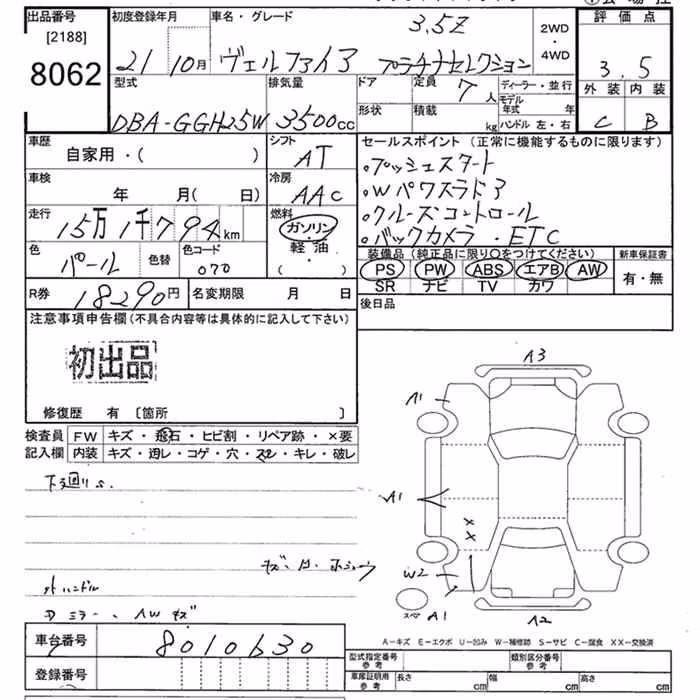 出品番号
[2188]
8062
初度登録年月
21 10月
車名・グレード
3.5Z
ヴェルファイア プラチナセレクション
2WD
・
4WD
評価点
3.5
外装 内装
C B
型式
DBA-GGH25W
排気量
3500cc
ドア
定員
7人
形状
積載
kg
ディーラー・並行
モデル年式 年
ハンドル 左・右
車歴
自家用・( )
シフト
AT
車検
年 月( 日)
冷房
AAC
走行
15万1千794km
燃料
ガソリン
軽油
( ・ )
色
パール
色替
色コード
070
R券
18290円
名変期限 月 日
セールスポイント(正常に機能するものに限ります)
・プッシュスタート
・Wパワスラドア
・クルーズコントロール
・バックカメラ・ETC
装備品(純正品に限り○をつけてください)
PS PW ABS エアB AW
SR ナビ TV カワ
新車保証書
有・無
後日品
注意事項申告欄(不具合内容等は具体的に記入して下さい)
初出品
修復歴 有 〔箇所 〕
検査員 FW キズ・飛石・ヒビ割・リペア跡・×要
記入欄 内装 キズ・汚レ・コゲ・穴・スレ・キレ・破レ
下廻りS.
外ハンドル
ミラー、AWキズ
A3
A1
A1
XX
W2
スペア
A1
A2
A-キズ E-エクボ U-凹み W-補修跡 S-サビ C-腐食 XX-交換済
車台番号
8010630
登録番号
型式指定番号
参考
類別区分番号
参考
車庫証明用
参考
長さ cm 幅 cm 高さ cm